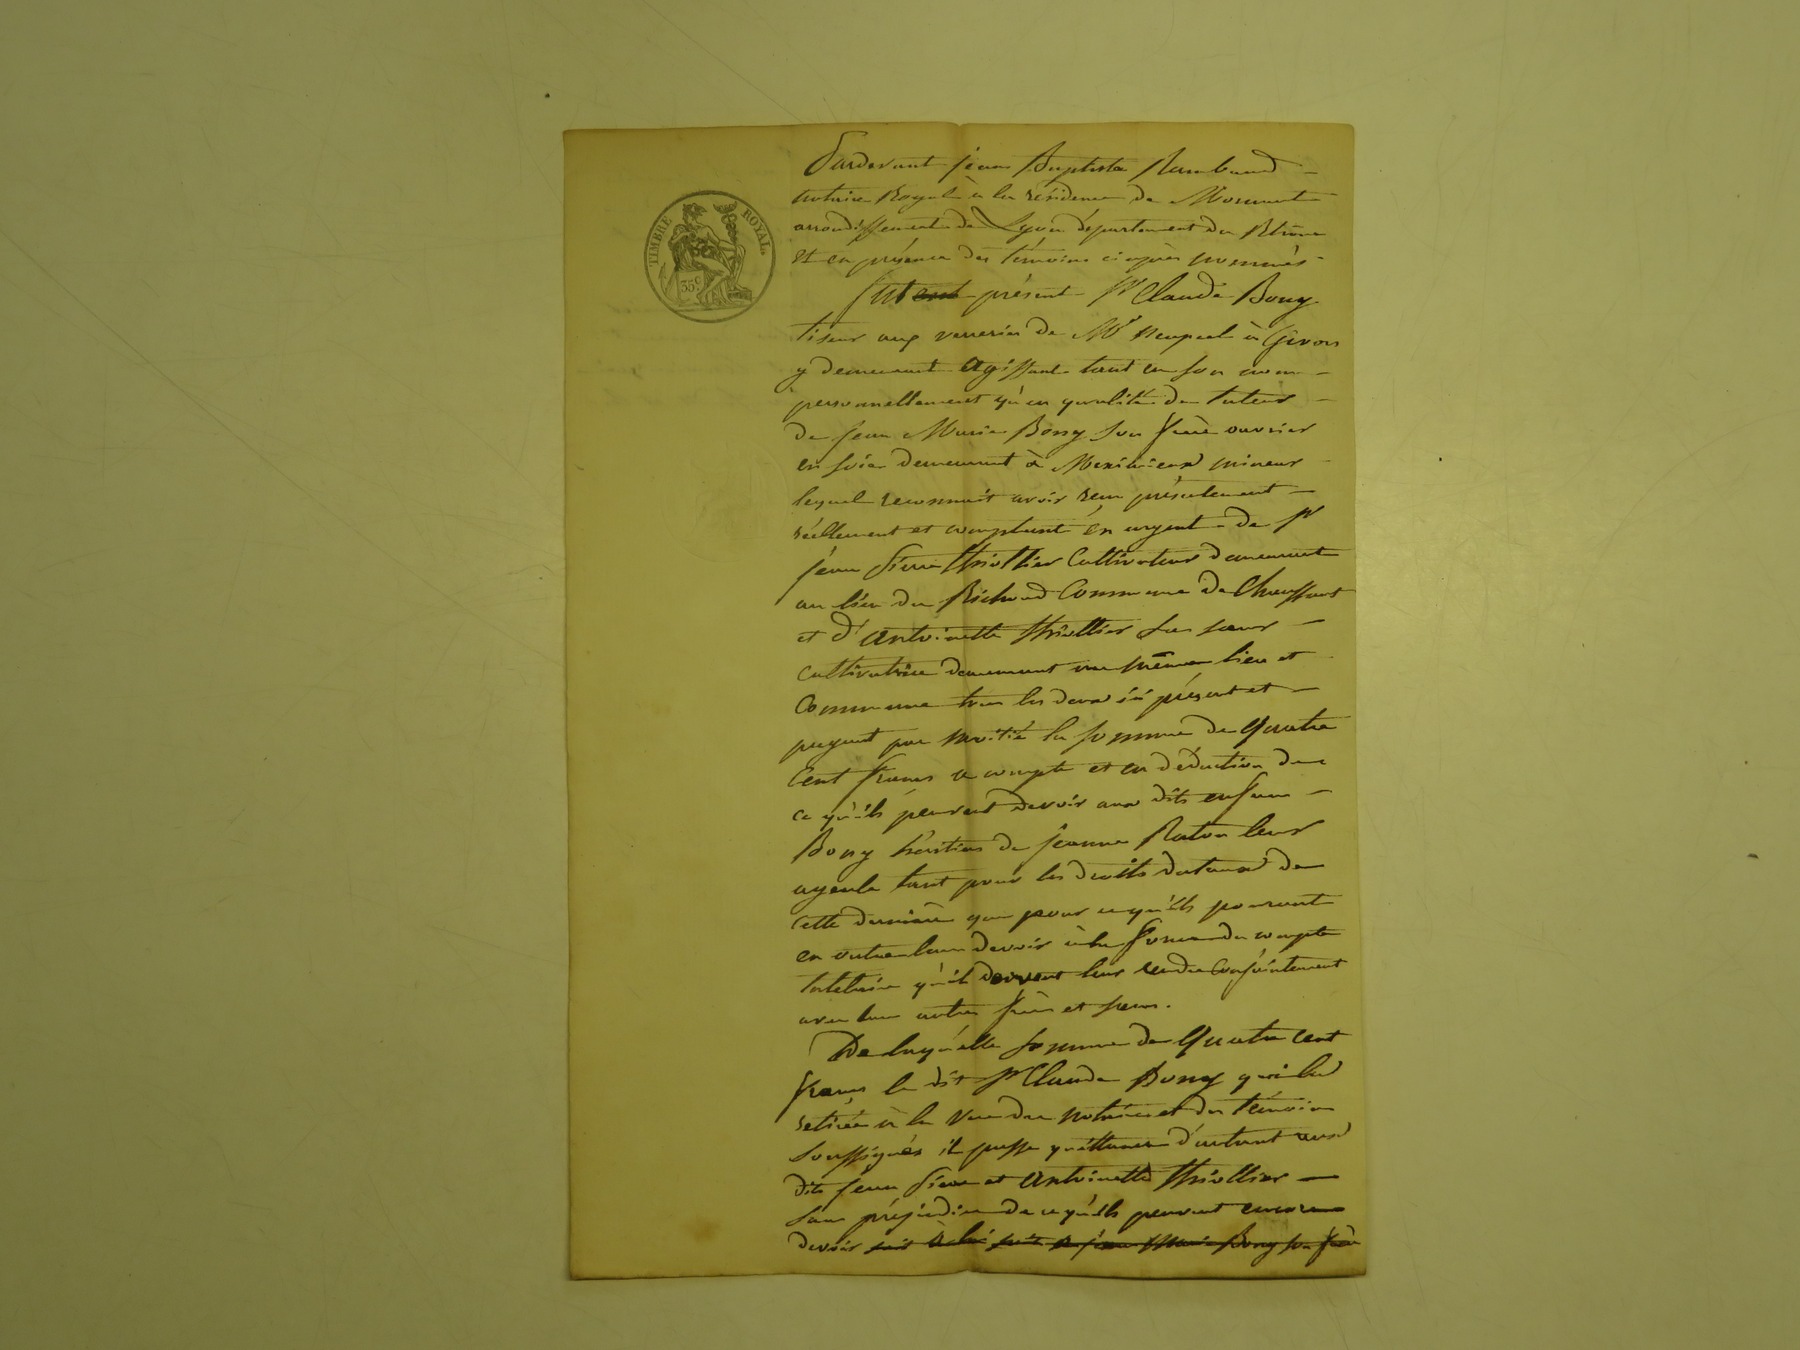 TIMBRE ROYAL
35 c
Pardevant jean Baptiste Rambaud
notaire Royal à la résidence de Mornant
arrondissement de Lyon département du Rhône
et en présence des témoins ci après nommés
fut présent Sr Claude Bony
tiseur aux verreries de Mr Neuvesel à Givors
y demeurant agissant tant en son nom
personnellement qu'en qualité de tuteur
de jean Marie Bony son frère ouvrier
en soie demeurant à mineur
lequel reconnait avoir reçu présentement
réellement et comptant en argent de Sr
jean Pierre thiollier Cultivateur demeurant
au lieu du Richoud Commune de Chaussant
et d'antoinette thiollier sa sœur
cultivatrice demeurant au même lieu et
Commune tous les deux ici présent et
payant par moitié la somme de quatre
Cent francs a compte et en déduction de
ce qu'ils peuvent devoir aux dits enfans
Bony héritiers de jeanne Raton leur
ayeule tant pour les droits dotaux de
cette dernière que pour ce qu'ils pourront
en outre leur devoir à la forme du compte
tutelaire qu'ils doivent leur rendre conjointement
avec leurs autres frères et sœurs.
De laquelle somme de quatre cent
francs le dit Sr Claude Bony qui l'a
retirée à la vue du notaire et des témoins
soussignés il passe quittance d'autant aux
dits jean Pierre et antoinette thiollier
sans préjudice de ce qu'ils peuvent encore
devoir soit à lui soit à jean Marie Bony son frère